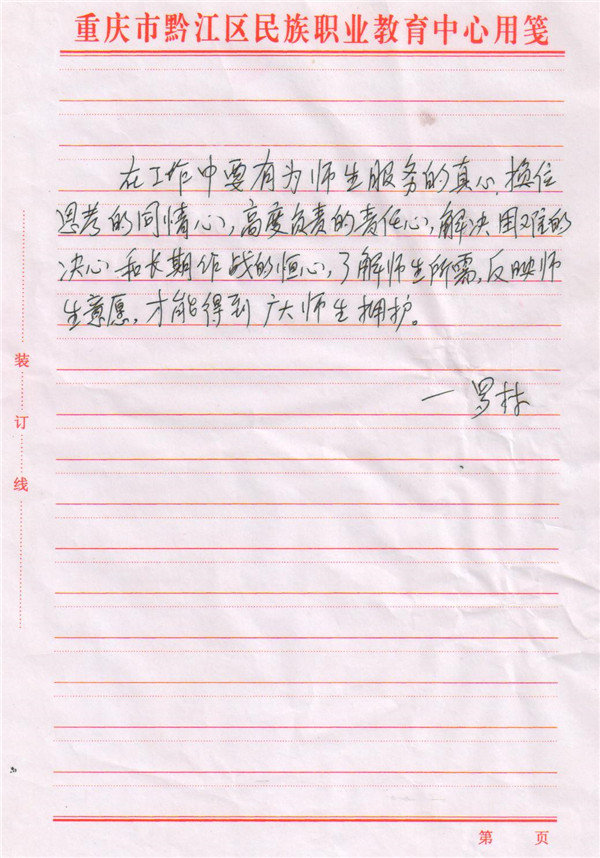 重庆市黔江区民族职业教育中心用笺
在工作中要有为师生服务的真心,换位
思考的同情心,高度负责的责任心,解决困难的
决心和长期作战的恒心,了解师生所需,反映师
生意愿,才能得到广大师生拥护。
一罗林
装
订
线
第 页